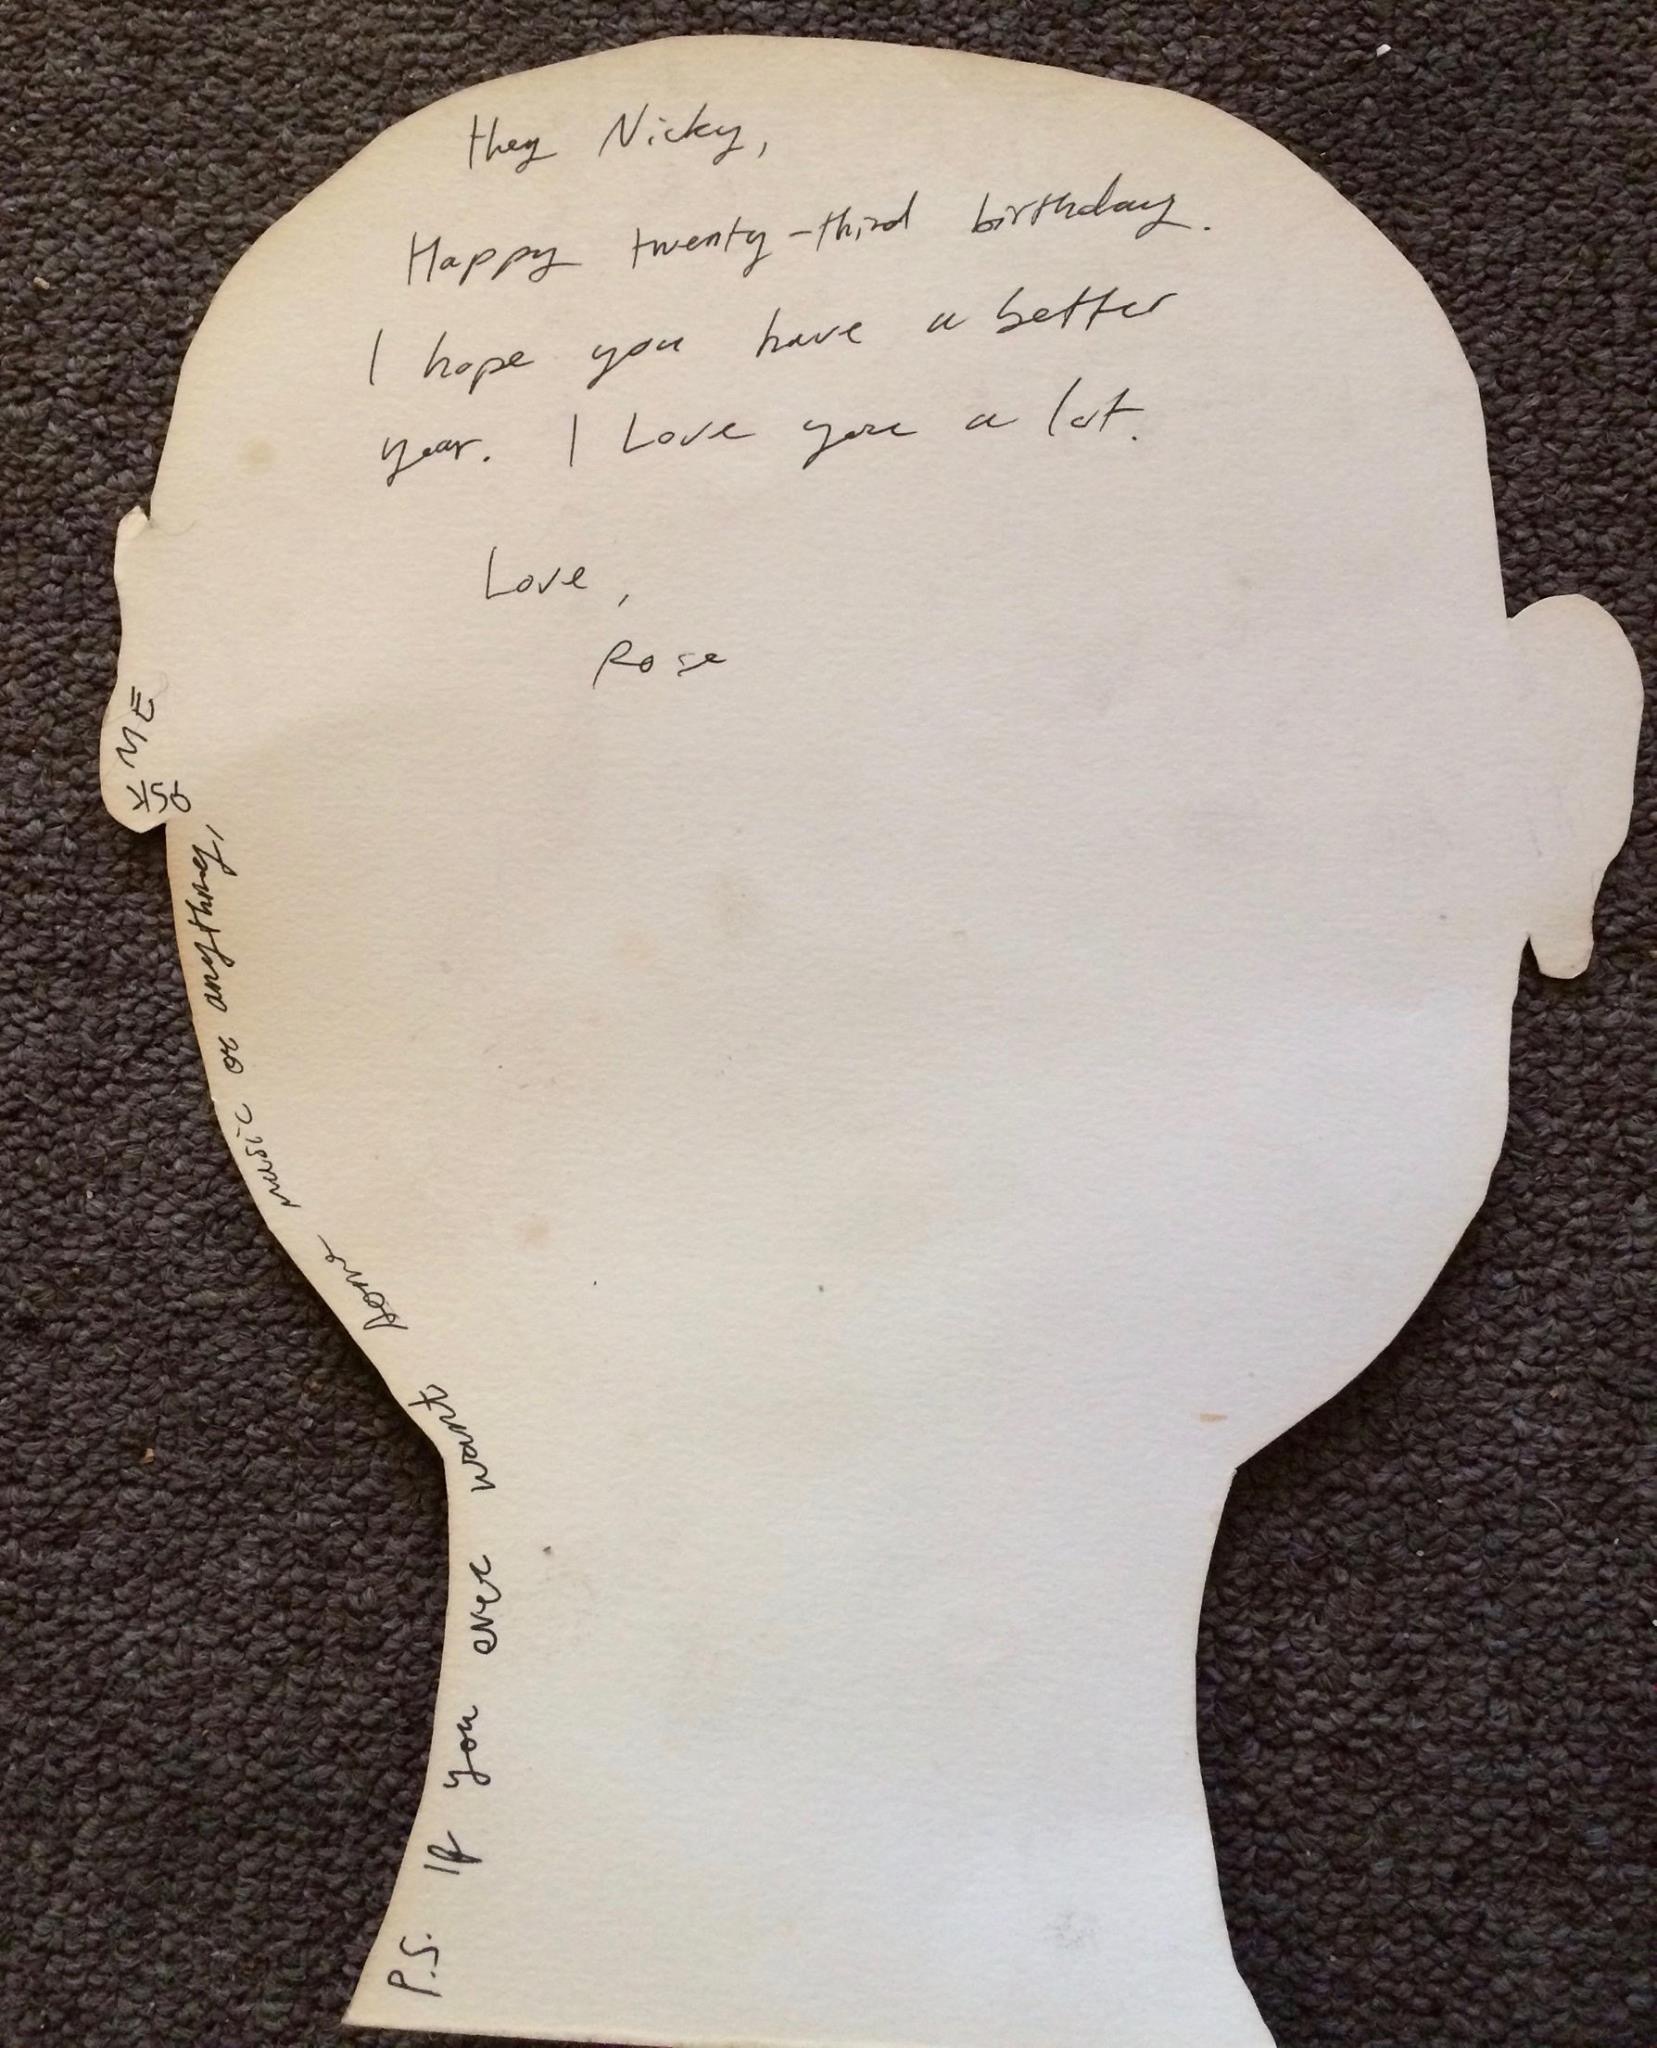 Hey Nicky,
Happy twenty-third birthday.
I hope you have a better
year. I Love you a lot.
Love,
Rose
P.S. If you ever want some music or anything,
ASK ME